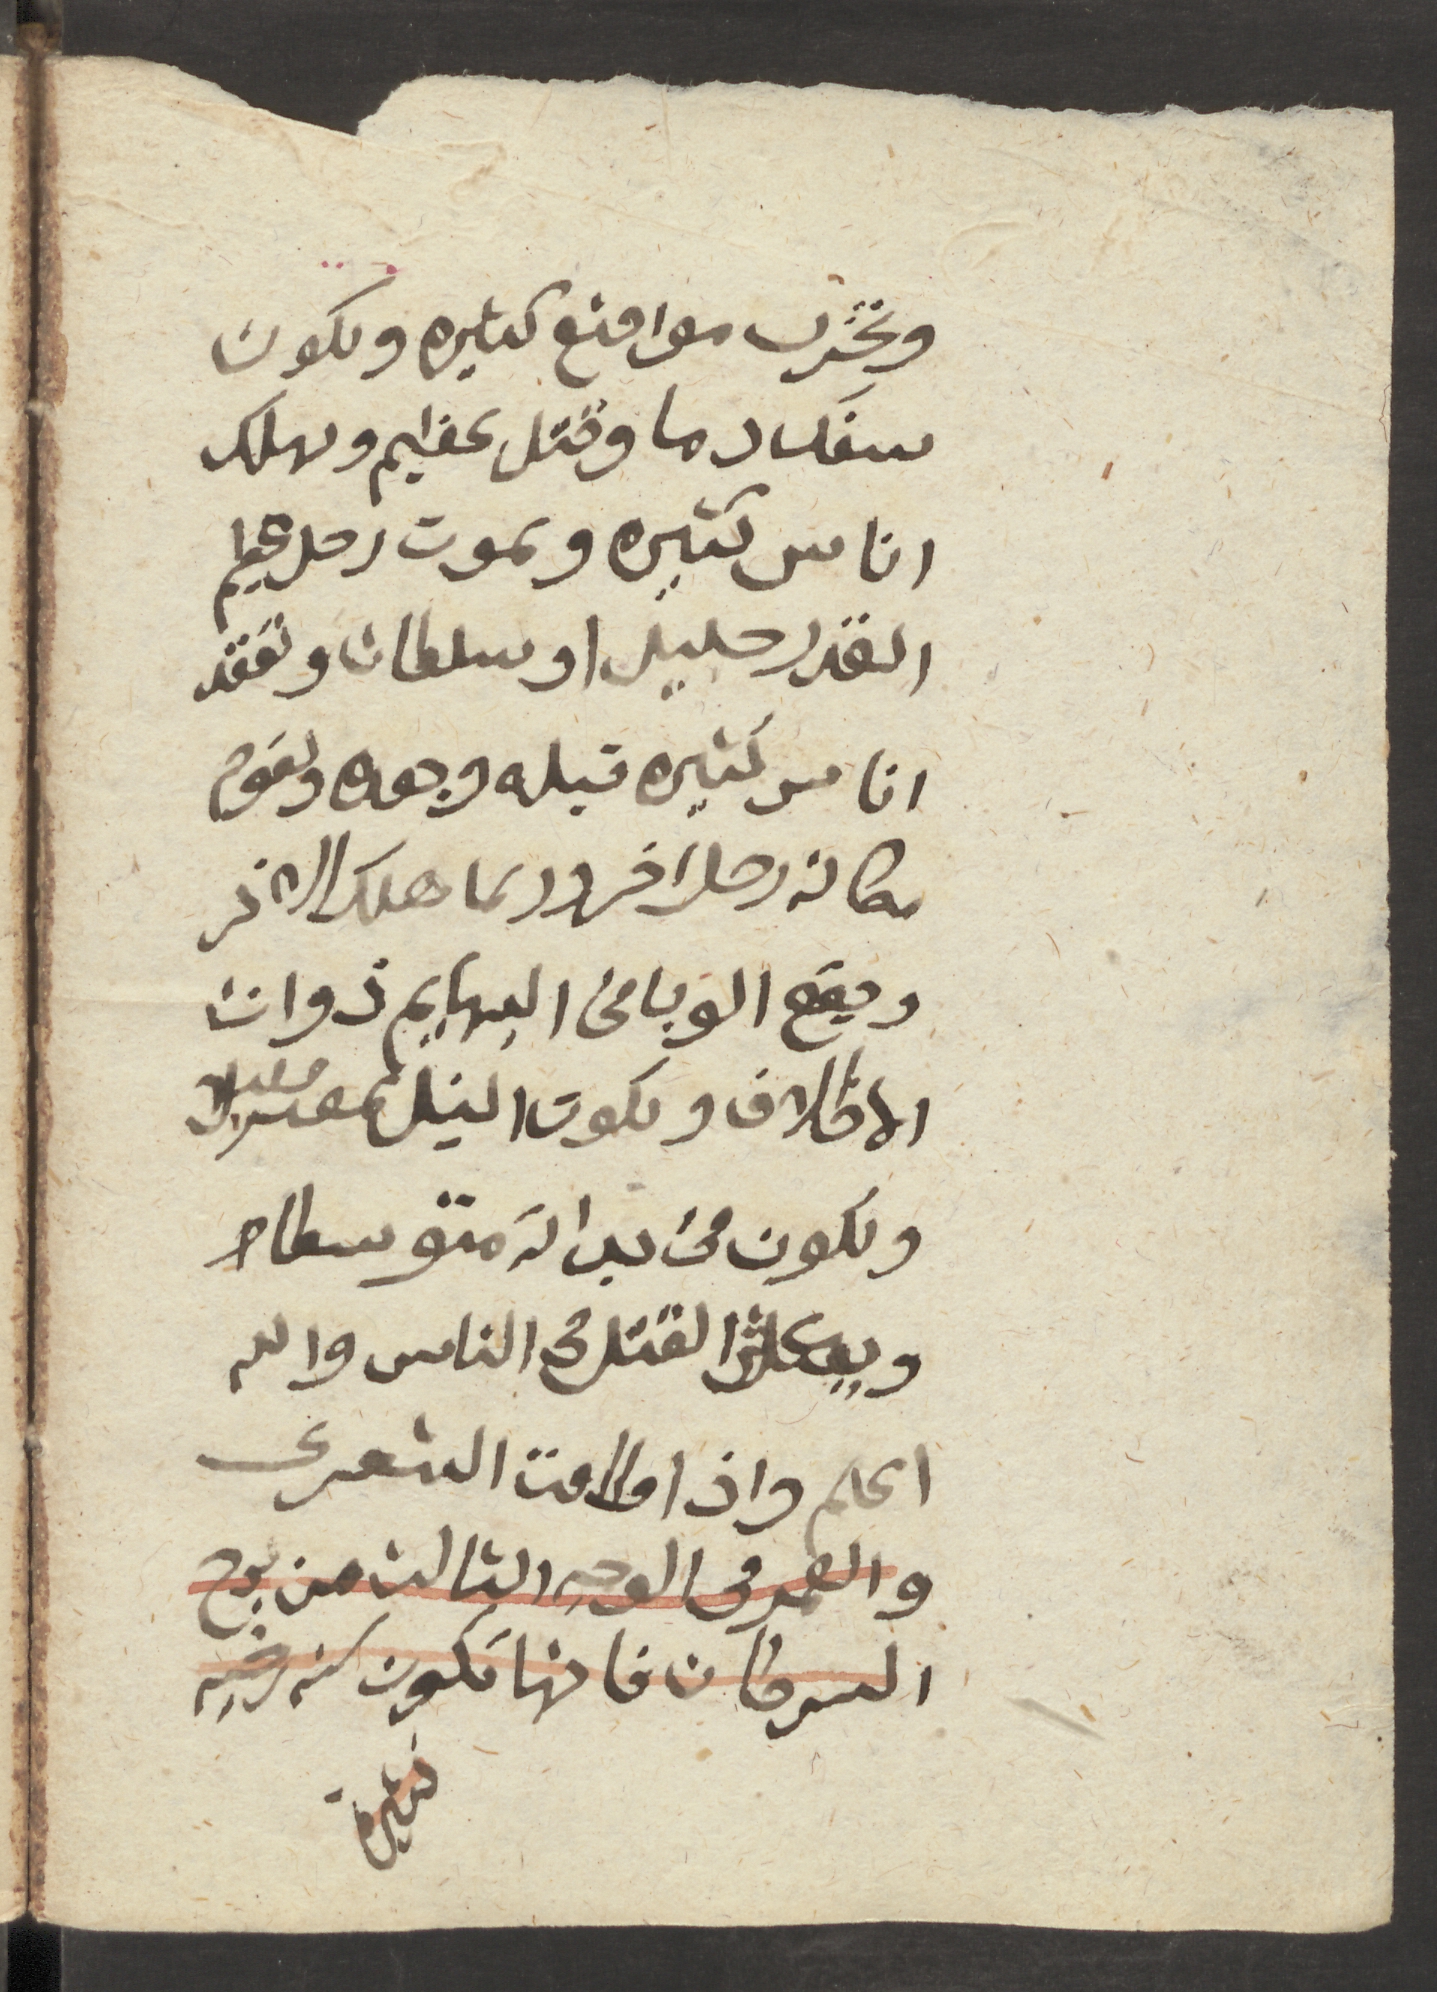 وتخرب مواضع كثيره وتكون
سفك دما وقتل عظيم ويهلك
اناس كثيره ويموت رجل عظيم
القدر جليل او سلطان وتفقد
اناس كثيره قبله وبعده ويقوم
مكانه رجل اخر وربما هلك الاخر
ويقع الوبا فى البهايم ذوات
الاظلاف ويكون النيل بمصر
ويكون فى بداته متوسطا
القتل فى الناس والله
اعلم واذا طلعت الشعرى
والقمر فى الوجه الثالث من برج
السرطان فانها تكون سنه رخيه
كثيرة